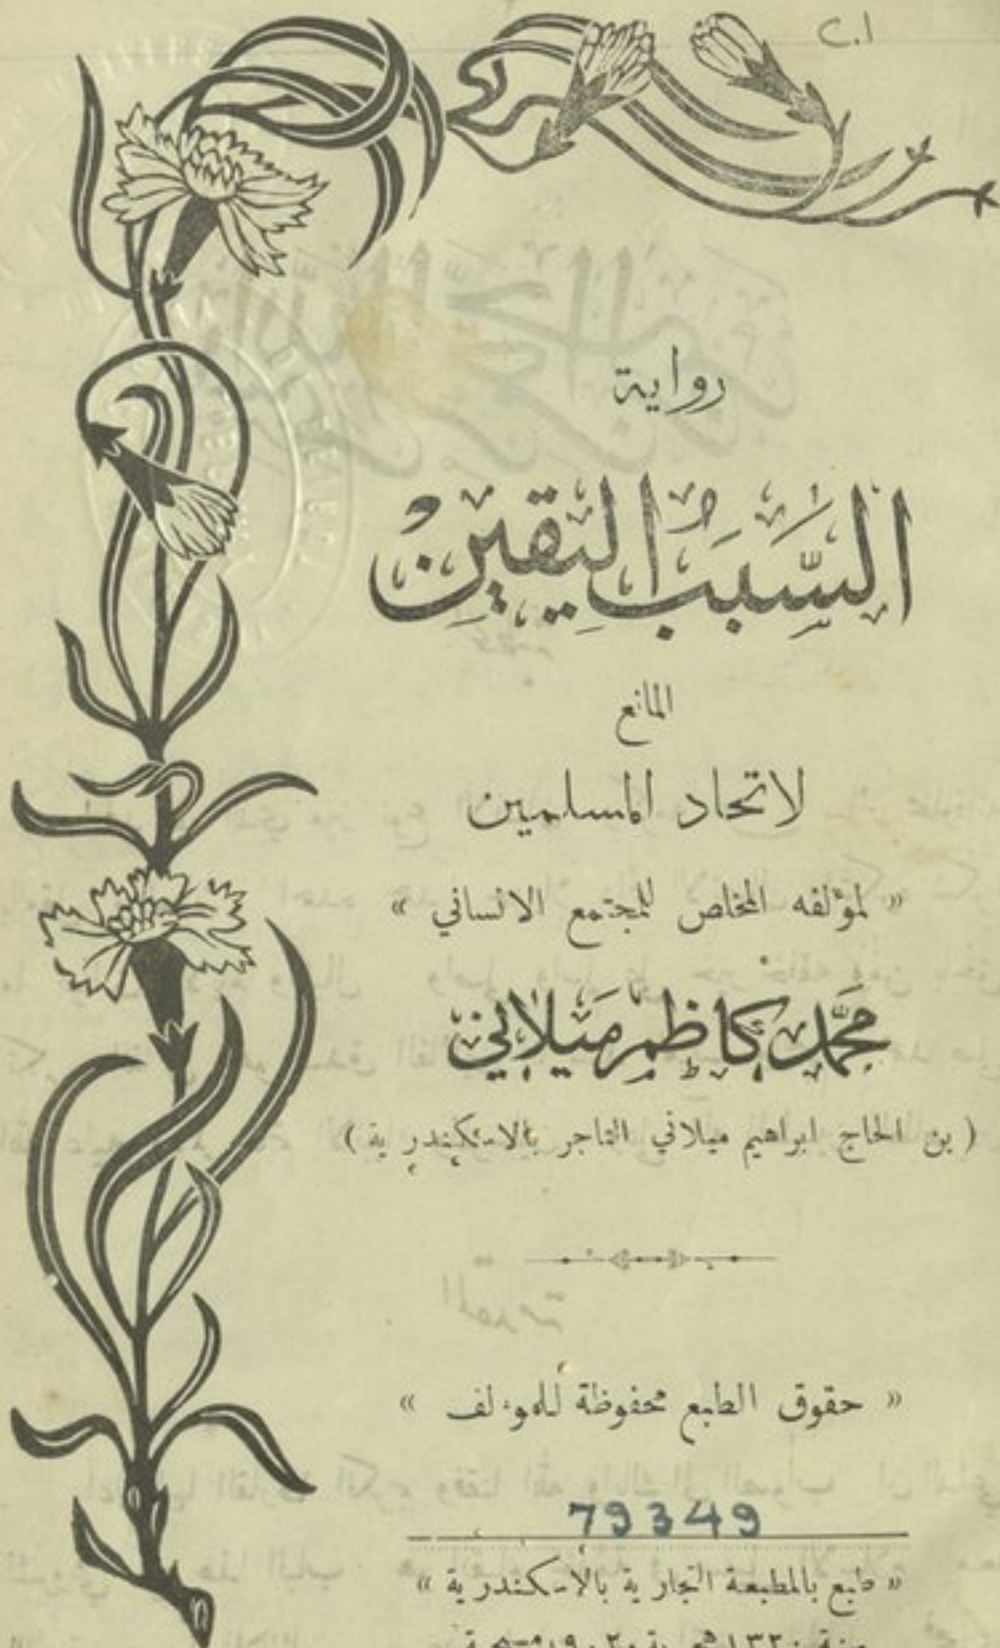 C.1
رواية
السَّبَبُ اليَقِينْ
المانع
لاتحاد المسلمين
« لمؤلفه المخلص للمجتمع الانساني »
محمَّد كاظم ميلاني
( بن الحاج ابراهيم ميلاني التاجر بالاسكندرية )
« حقوق الطبع محفوظة للمؤلف »
79349
« طبع بالمطبعة التجارية بالاسكندرية »